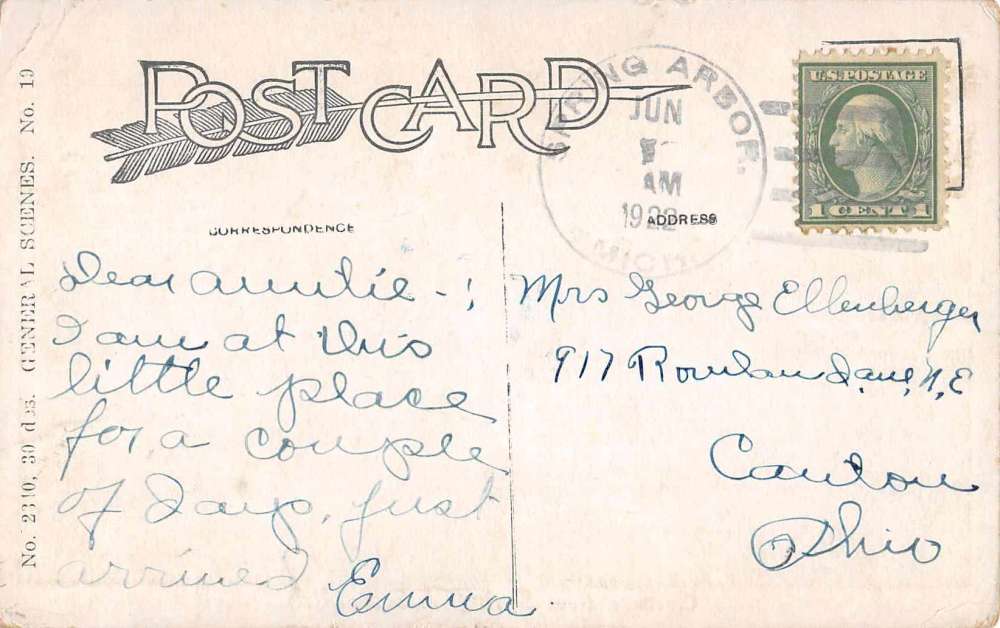 POST CARD
SPRING ARBOR.
JUN
AM
1922
MICH.
U.S. POSTAGE
1 CENT 1
CORRESPONDENCE
ADDRESS
Dear Auntie - ;
I am at this
little place
for a couple
of days, just
arrived
Emma
Mrs George Ellenberger
917 Ave, N, E
Canton
Ohio
No. 2310, 30 des. GENERAL SCENES. No. 19